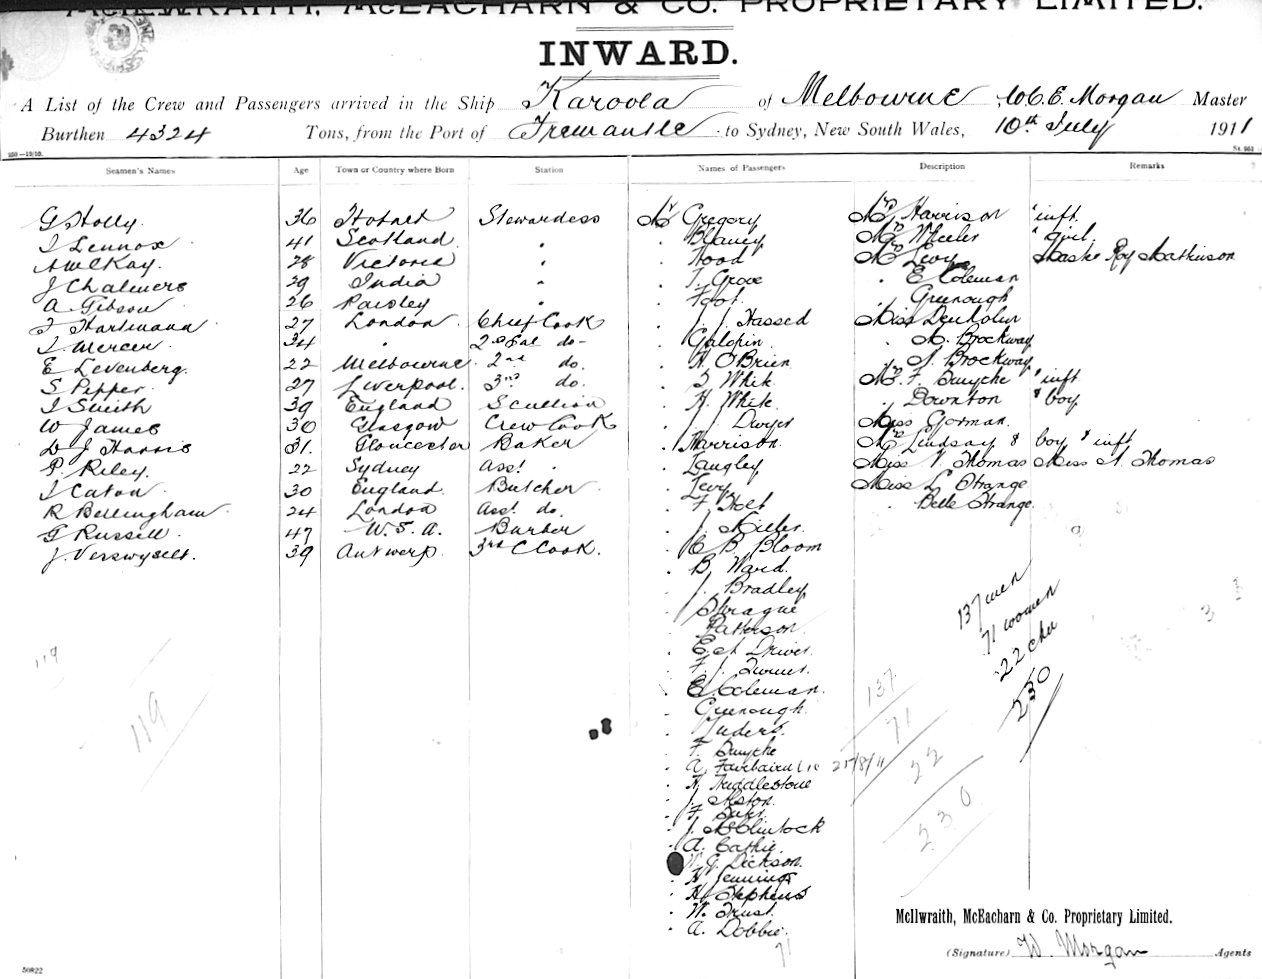 McILWRAITH, McEACHARN & CO. PROPRIETARY LIMITED.
INWARD.
A List of the Crew and Passengers arrived in the Ship Karoola of Melbourne, W. C. E. Morgan Master
Burthen 4324 Tons, from the Port of Fremantle to Sydney, New South Wales, 10th July 1911
Seamen's Names Age Town or Country where Born Station Names of Passengers Description Remarks
G Holly. 36 Hobart Stewardess Mr Gregory Mrs Harrison " inft
J Lennox 41 Scotland " Blaney Mrs Wheeler " girl
A McKay. 28 Victoria " Hood Mrs Levy Master Roy Mathieson
J Chalmers 29 India " T. Grove " E Coleman
A. Gibson 26 Paisley " Foot " Greenough
J Hartmann 27 London Chief Cook " J. J. Hassed Miss Denholm
J. Mercer. 34 " 2nd do " Galpin " M. Brockway
E Levenberg. 22 Melbourne 2nd do. " H O'Brien " A. Brockway
S Pepper. 27 Liverpool. 3rd do. " J White Mrs F. Dwyche " inft
J Smith 39 England Scullion " H. White " Downton & boy
W James 30 Glasgow Crew Cook " J. Dwyer Miss Gorman.
D J Harris 31. Gloucester Baker " Harrison. Mrs Lindsay & boy & inft
P Riley. 22 Sydney Asst " Langley Miss V. Thomas Miss A. Thomas
J Caton 30 England. Butcher " Levy Miss L Strange
R Bellingham 24 London Asst do. " F Holt " Belle Strange.
G Russell 47 W. S. A. Barber " J.
J. Verswyselt. 39 Antwerp. 3rd C Cook. " C B. Bloom
" B. Ward.
" J. Bradley
" Sprague
" Patterson.
" E A Driver.
" F. J. Turner.
" E Coleman.
" Greenough.
" Luders.
" F. Dwyche
" A. Fairbairn 25/8/11
" H Huddlestone
" J. Alston.
" F.
" J. McClintock
" A. Cathie.
" W G. Dickson.
" H Jennings
" H Stephens
" W. Trust.
" A. Dobbie.
71
137 men
71 women
22 chn
230
137
71
22
230
119
119
3
McIlwraith, McEacharn & Co. Proprietary Limited.
(Signature) W. Morgan Agents
50822